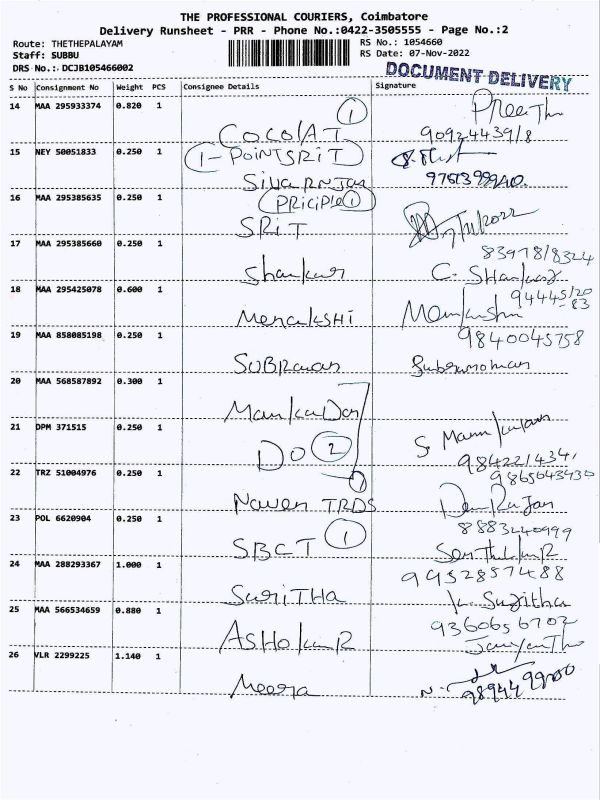 THE PROFESSIONAL COURIERS, Coimbatore
Delivery Runsheet - PRR - Phone No.:0422-3505555 - Page No.:2
Route: THETHEPALAYAM RS No.: 1054660
Staff: SUBBU RS Date: 07-Nov-2022
DRS No.: DCJB105466002 DOCUMENT DELIVERY
S No Consignment No Weight PCS Consignee Details Signature
14 MAA 295933374 0.820 1 1 Preethi
COCOLAT 9092443918
15 NEY 50051833 0.250 1 1-POINTSRIT
SivaRNJan
16 MAA 295385635 0.250 1 PRICIPLE 1
SRIT
17 MAA 295385660 0.250 1 83978/8324
Shankar C. Shankar
18 MAA 295425078 0.600 1 94445/20
-83
MenakSHI
19 MAA 858085198 0.250 1 9840045758
SUBRaman Subramonian
20 MAA 568587892 0.300 1
ManikaDan
21 DPM 371515 0.250 1 S. Manikandan
DO 2 9842214341
22 TRZ 51004976 0.250 1 1 9865643430
Naven TRDS
23 POL 6620904 0.250 1 8883240999
SBCT 1 Senthilkumar
24 MAA 288293367 1.000 1 9952857488
SurjiTHa K. Sujitha
25 MAA 566534659 0.880 1 9360656702
ASHOKUR
26 VLR 2299225 1.140 1
Meera 9894499000